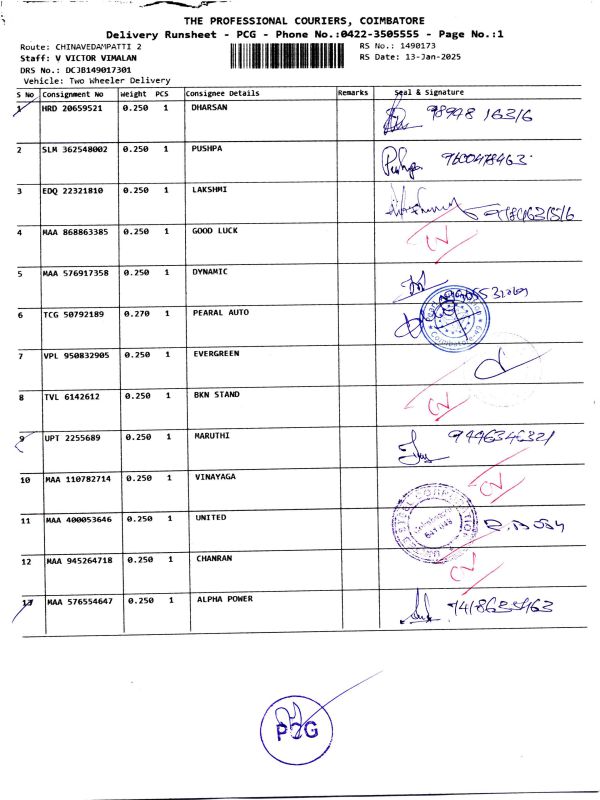 THE PROFESSIONAL COURIERS, COIMBATORE
Delivery Runsheet - PCG - Phone No.:0422-3505555 - Page No.:1
Route: CHINAVEDAMPATTI 2 RS No.: 1490173
Staff: V VICTOR VIMALAN RS Date: 13-Jan-2025
DRS No.: DCJB149017301
Vehicle: Two Wheeler Delivery
S No Consignment No Weight PCS Consignee Details Remarks Seal & Signature
1 HRD 20659521 0.250 1 DHARSAN 98948 16316
2 SLM 362548002 0.250 1 PUSHPA Pushpa 9600478463
3 EDQ 22321810 0.250 1 LAKSHMI
4 MAA 868863385 0.250 1 GOOD LUCK
5 MAA 576917358 0.250 1 DYNAMIC
6 TCG 50792189 0.270 1 PEARAL AUTO
7 VPL 950832905 0.250 1 EVERGREEN
8 TVL 6142612 0.250 1 BKN STAND
9 UPT 2255689 0.250 1 MARUTHI 9446346321
10 MAA 110782714 0.250 1 VINAYAGA
11 MAA 400053646 0.250 1 UNITED
12 MAA 945264718 0.250 1 CHANRAN
13 MAA 576554647 0.250 1 ALPHA POWER
PCG